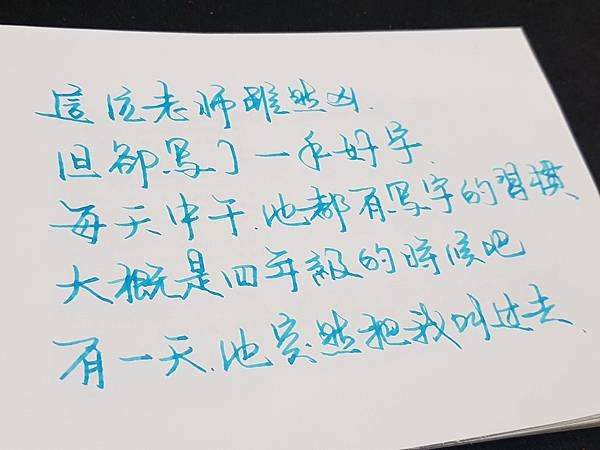 這位老师雖然凶.
但卻写了一手好字.
每天中午.他都有写字的習慣、
大概是四年級的時候吧
有一天.他突然把我叫过去、